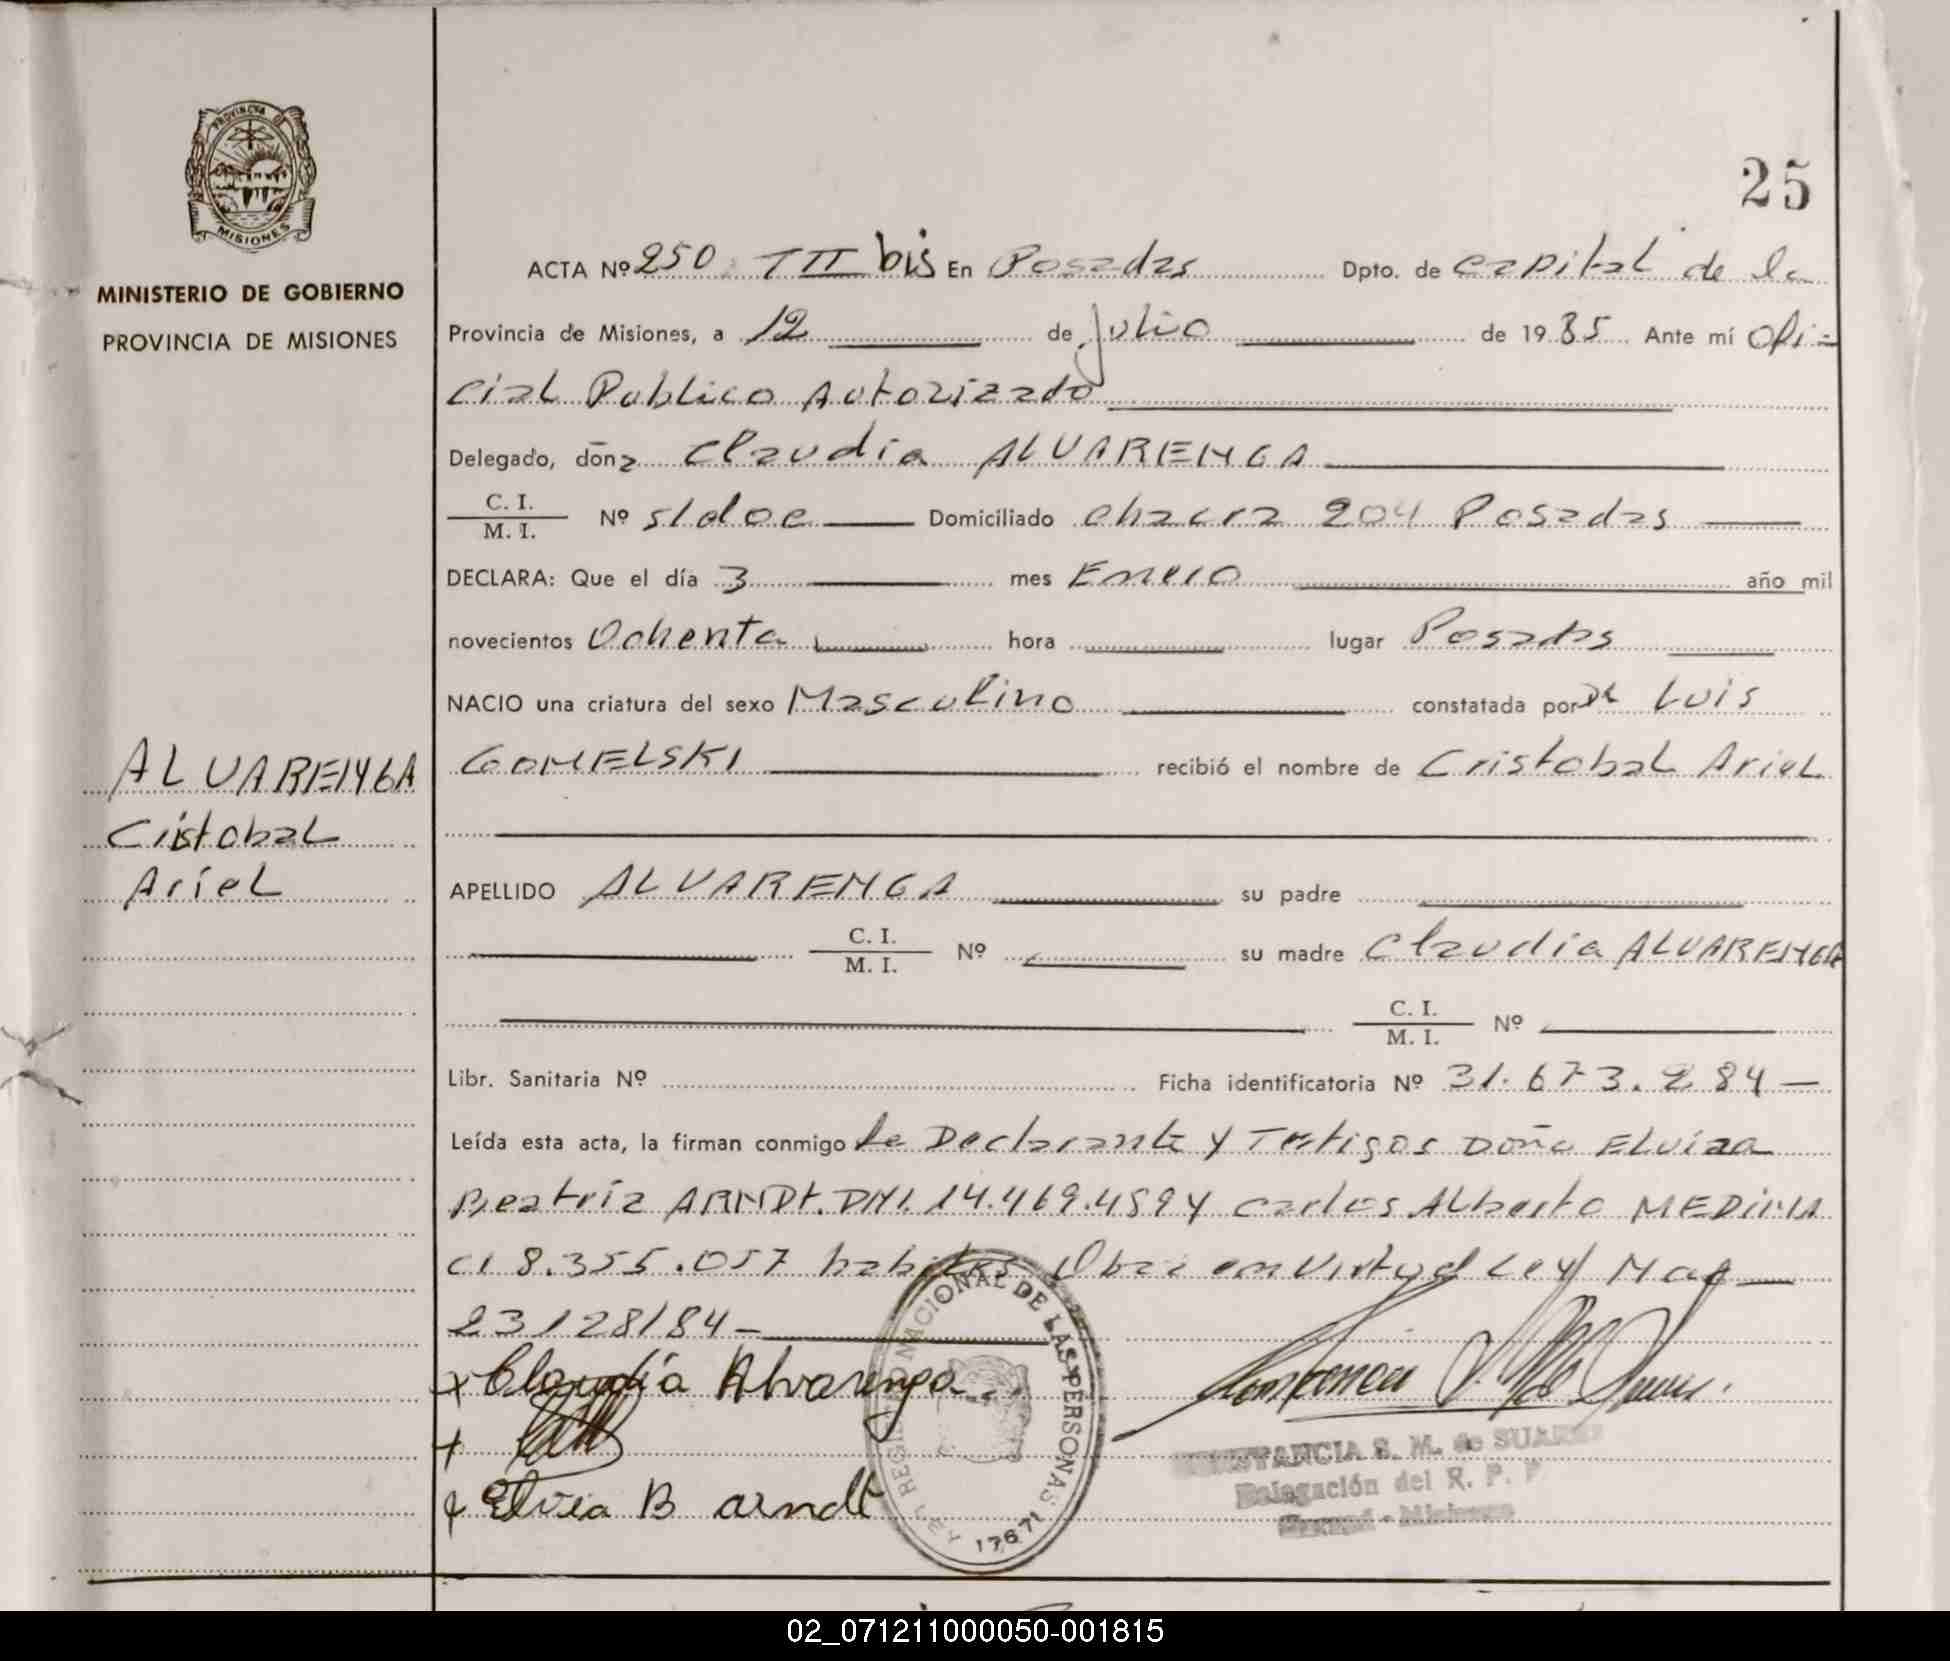 PROVINCIA DE
MISIONES
MINISTERIO DE GOBIERNO
PROVINCIA DE MISIONES
25
ACTA Nº 250 TII bis En Posadas Dpto. de capital de la
Provincia de Misiones, a 12 de Julio de 1985 Ante mí Ofi-
cial Publico Autorizado
Delegado, doña Claudia ALVARENGA
C. I.
M. I. Nº s/doc Domiciliado chacra 204 Posadas
DECLARA: Que el día 3 mes Enero año mil
novecientos Ochenta hora lugar Posadas
NACIO una criatura del sexo Masculino constatada por Dr Luis
GOMELSKI recibió el nombre de Cristobal Ariel
ALVARENGA
Cristobal
Ariel
APELLIDO ALVARENGA su padre
C. I.
M. I. Nº su madre Claudia ALVARENGA
C. I.
M. I. Nº
Libr. Sanitaria Nº Ficha identificatoria Nº 31.673.284
Leída esta acta, la firman conmigo la Declarante y Testigos Doña Elviza
Beatriz ARNDT. DNI. 14.469.459 y Carlos Alberto MEDINA
CI 8.355.057 habiles Obra en virtud Ley Nac
23128/84
x Claudia Alvarenga
x Elvia B arndt
REGISTRO NACIONAL DE LAS PERSONAS
LEY 17671
CONSTANCIA S. M. de SUAREZ
Delegación del R. P. P
02_071211000050-001815